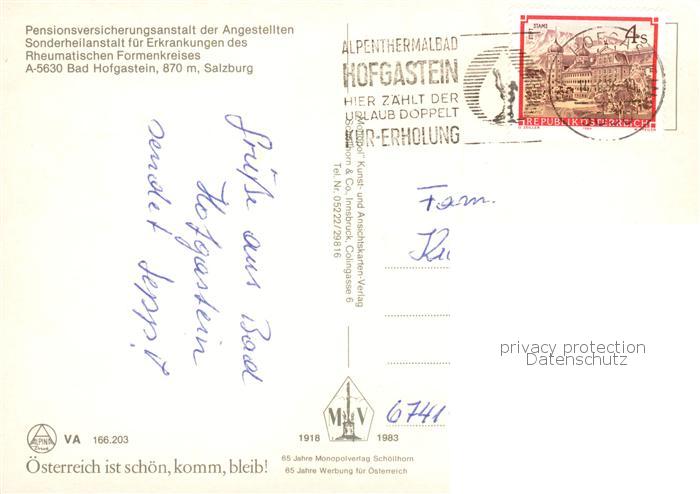 Pensionsversicherungsanstalt der Angestellten
Sonderheilanstalt für Erkrankungen des
Rheumatischen Formenkreises
A-5630 Bad Hofgastein, 870 m, Salzburg
ALPENTHERMALBAD
HOFGASTEIN
HIER ZÄHLT DER
URLAUB DOPPELT
KUR-ERHOLUNG
STAMS
4 s
REPUBLIK ÖSTERREICH
Grüße aus Bad
Hofgastein
sendet
"Monopol" Kunst- und Ansichtskarten-Verlag
Schöllhorn & Co., Innsbruck, Colingasse 6
Tel. Nr. 05222/29816
Fam.
6741
privacy protection
Datenschutz
ALPINA
Druck
VA 166.203
Österreich ist schön, komm, bleib!
M V
1918 1983
65 Jahre Monopolverlag Schöllhorn
65 Jahre Werbung für Österreich